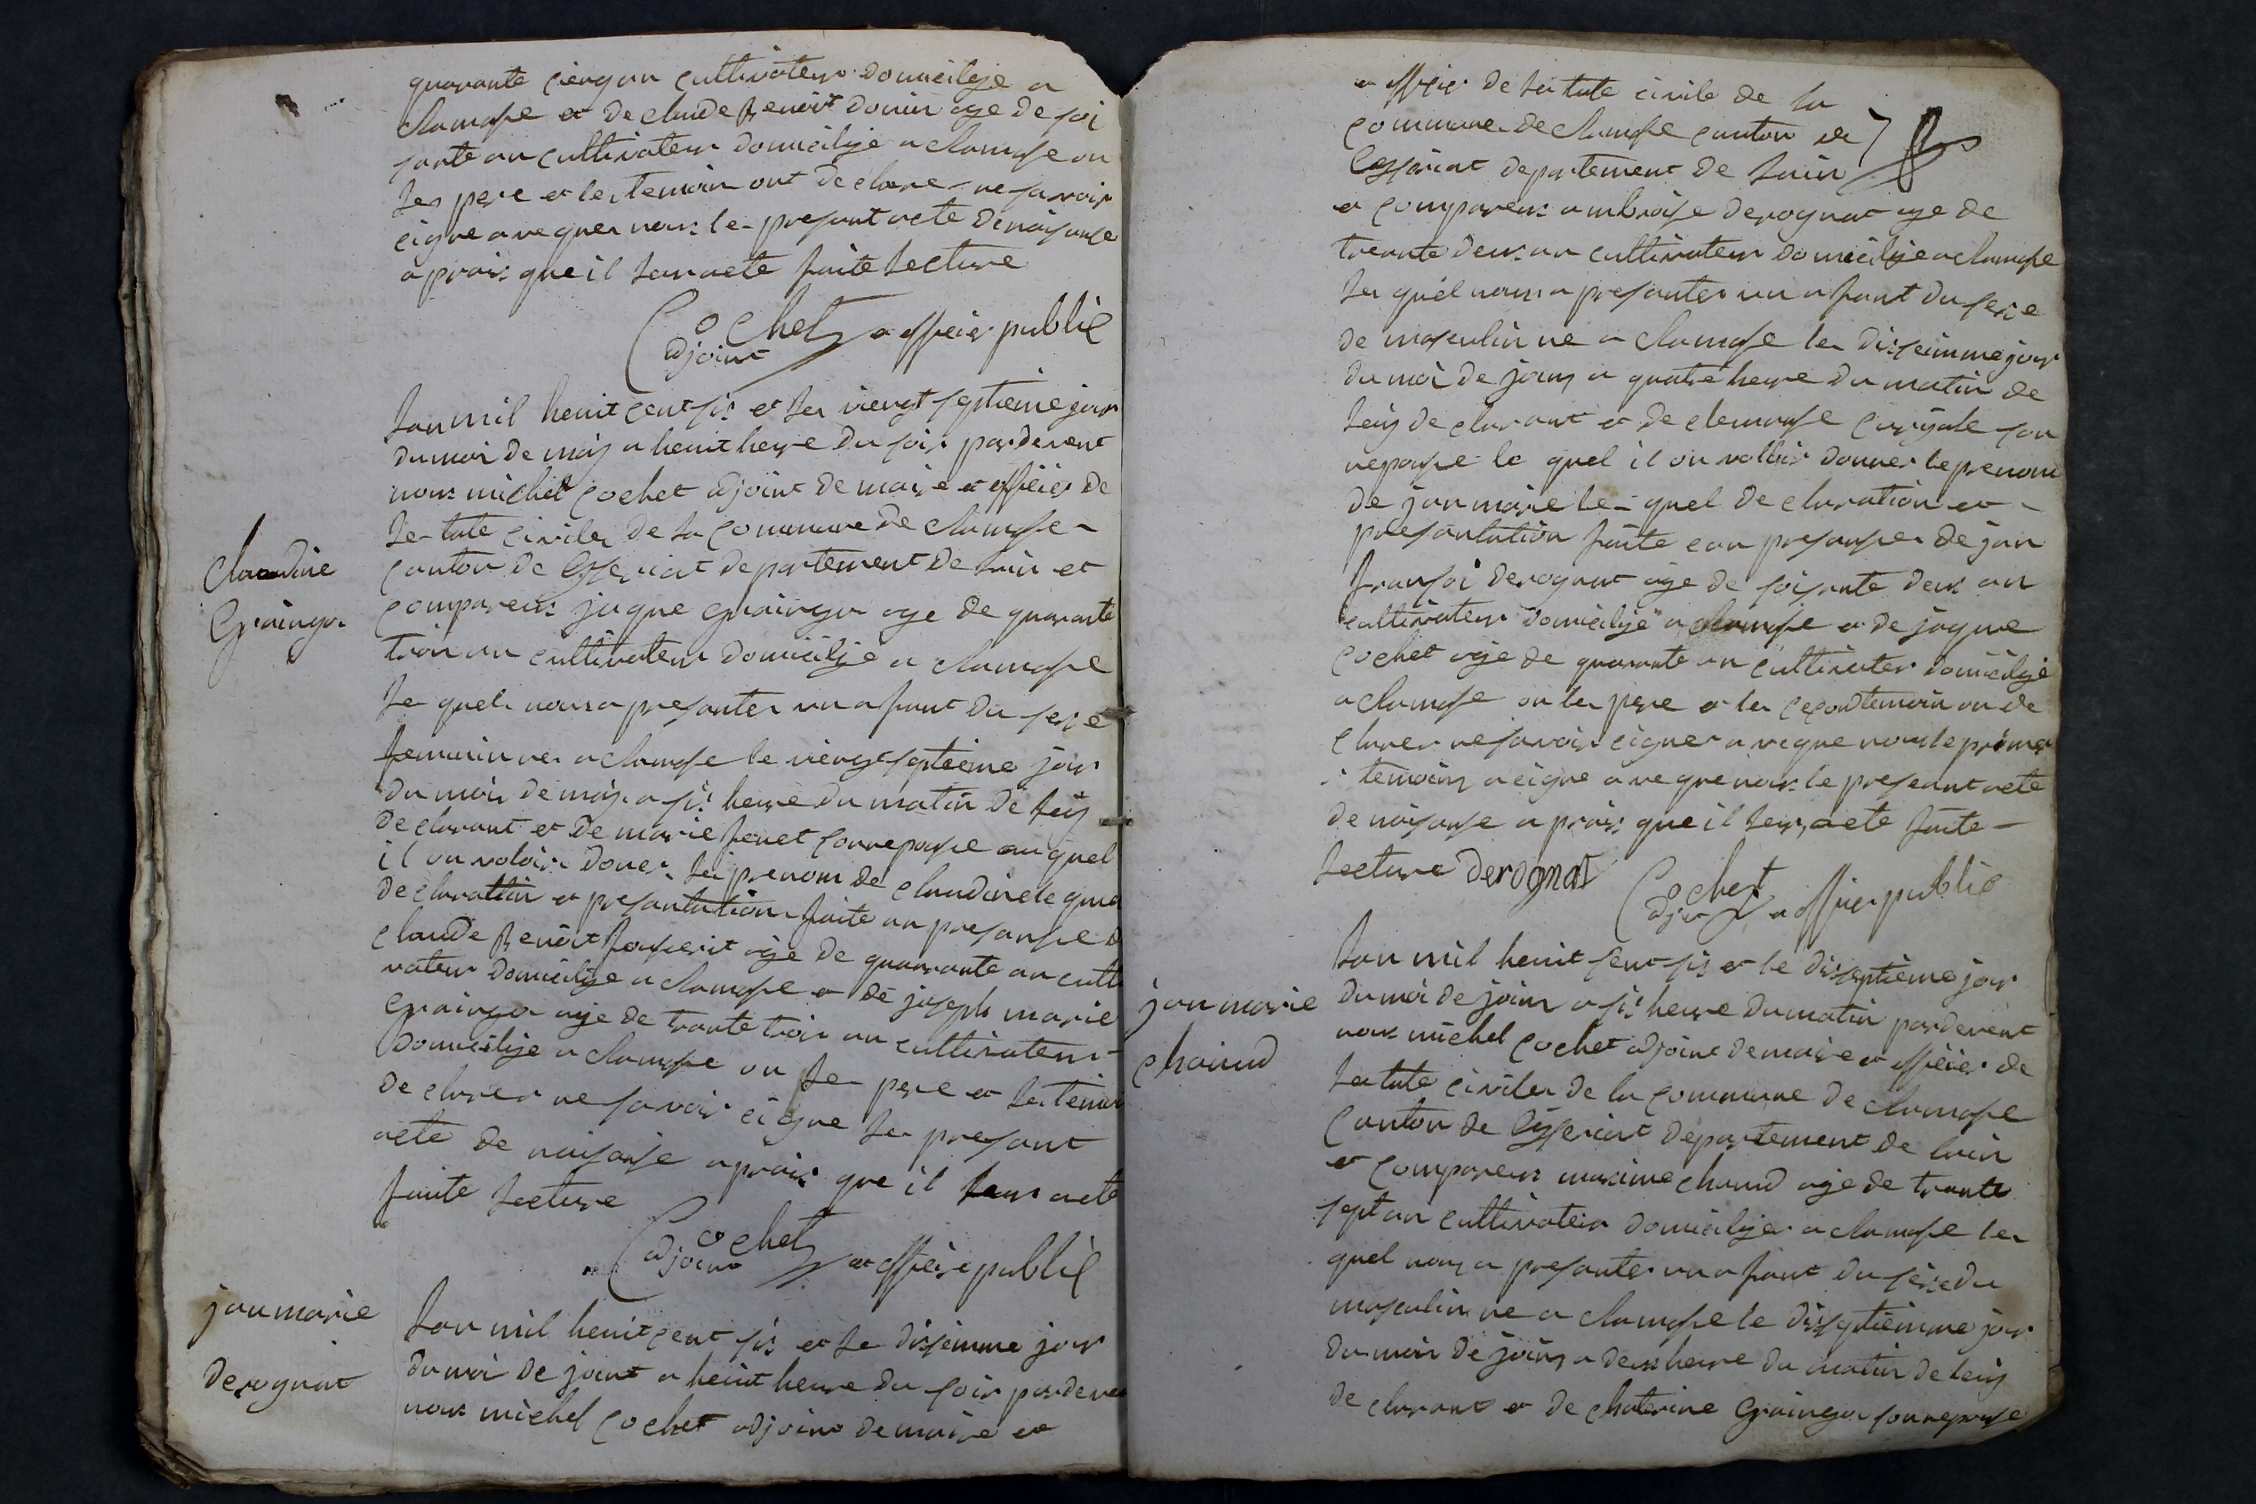 quarante cienqun cultivateur domicilge a
chamose et de claude Benoit domin age de soi
sante an cultivateur domicilge a chamose on
les pere et les temoin ont de clare ne savoir
cigne a veque nous le presant acte de naisanse
a prais que il leur acte faite lecture
Cochet a offcier public
adjoint
lan mil heuit cent sis et le viengt septieme jour
du moi de maij a heuit heure du soir pardevent
nous michel Cochet adjoint de maire et officier de
le tate civile de la commune de chamose
canton de Cesseriat departement de lain et
Claudine
Grainga
compareus jaque Grainga age de quarante
troi an cultivateur domicilge a chamose
le quel nous a presanter un a fant du sexe
feminin ne a chamose le viengt septieme jour
du moi de maij a sis heure du matin de luij
de clarant et de marie fenet son epouse au quel
il on voloir doner le prenom de claudine le quel
de claration et presantation faite an presanse de
claude Benoit age de quarante an culti
vateur domicilge a chamose et de joseph marie
Grainga age de trante troi an cultivateur
Domicilge a chamose on le pere et les temoin
de clarer ne savoir cigne le presant
acte de naisanse a prais que il leur acte
faite lecture
Cochet a officier public
adjoint
jan marie
derognat
lan mil heuit cent sis et le dissieimme jour
du moi de joint a heuit heure du soir pardevent
nous michel Cochet adjoint de maire et
a offcier de la tate civile de la
commune de chamose canton de
Cesseriat departement de lain
et compareus ambroise derognat age de
trente deus an cultivateur domicilge a chamose
le quel nous a presanter un a fant du sexe
de masculin ne a chamose le dissieimme jour
du moi de join a quatre heure du matin de
luij de clarant et de clemanse son
nepouse le quel il on volloir donner le prenom
de jan marie le quel de claration et
presantation faite ean presanse de jan
fransoi derognat age de soisante deus an
cultivateur domicilge a chamose et de jaque
Cochet age de quarante an cultivater domicilge
a chamose on le pere et le cegond temoin on de
clarer ne savoir cigner a veque nous le premier
temoin a cigne a veque nous le presant acte
de naisanse a prais que il leur acte faite
lecture derognat
Cochet a offcier public
adjoint
jan marie
chanud
lan mil heuit sent sis et le disseptieme jour
du moi de join a sis heure du matin pardevent
nous michel Cochet adjoint de maire et officier de
la tate civile de la commune de chamose
Canton de Cesseriat departement de lain
et compareus maxime chanud age de trante
sept an cultivateur domicilge a chamose le
quel nous a presanter un a fant du sexe du
masculin ne a chamose le disseptiemme jour
du moi de join a deus heure du matin de luij
de clarant et de chaterine Grainga son nepouse